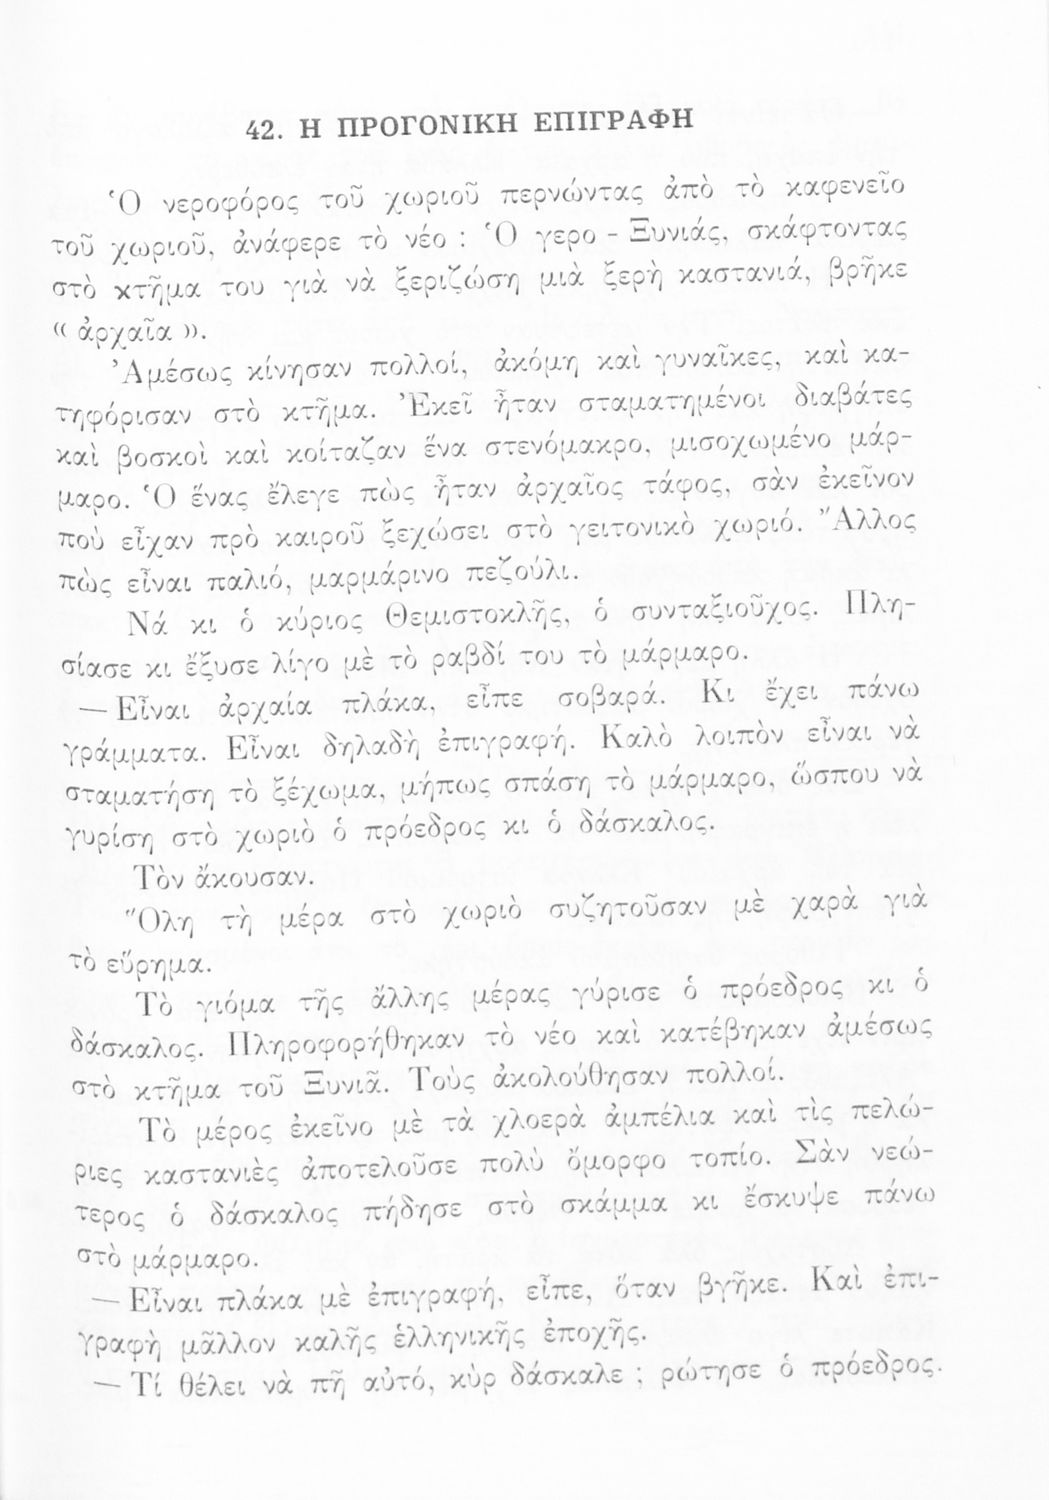 42. Η ΠΡΟΓΟΝΙΚΗ ΕΠΙΓΡΑΦΗ
Ὁ νεροφόρος τοῦ χωριοῦ περνώντας ἀπὸ τὸ καφενεῖο
τοῦ χωριοῦ, ἀνάφερε τὸ νέο : Ὁ γερο - Ξυνιάς, σκάφτοντας
στὸ κτῆμα του γιὰ νὰ ξεριζώση μιὰ ξερὴ καστανιά, βρῆκε
« ἀρχαῖα ».
Ἀμέσως κίνησαν πολλοί, ἀκόμη καὶ γυναῖκες, καὶ κα-
τηφόρισαν στὸ κτῆμα. Ἐκεῖ ἦταν σταματημένοι διαβάτες
καὶ βοσκοὶ καὶ κοίταζαν ἕνα στενόμακρο, μισοχωμένο μάρ-
μαρο. Ὁ ἕνας ἔλεγε πὼς ἦταν ἀρχαῖος τάφος, σὰν ἐκεῖνον
ποὺ εἶχαν πρὸ καιροῦ ξεχώσει στὸ γειτονικὸ χωριό. Ἄλλος
πὼς εἶναι παλιό, μαρμάρινο πεζούλι.
Νά κι ὁ κύριος Θεμιστοκλῆς, ὁ συνταξιοῦχος. Πλη-
σίασε κι ἔξυσε λίγο μὲ τὸ ραβδί του τὸ μάρμαρο.
— Εἶναι ἀρχαία πλάκα, εἶπε σοβαρά. Κι ἔχει πάνω
γράμματα. Εἶναι δηλαδὴ ἐπιγραφή. Καλὸ λοιπὸν εἶναι νὰ
σταματήση τὸ ξέχωμα, μήπως σπάση τὸ μάρμαρο, ὥσπου νὰ
γυρίση στὸ χωριὸ ὁ πρόεδρος κι ὁ δάσκαλος.
Τὸν ἄκουσαν.
Ὅλη τὴ μέρα στὸ χωριὸ συζητοῦσαν μὲ χαρὰ γιὰ
τὸ εὕρημα.
Τὸ γιόμα τῆς ἄλλης μέρας γύρισε ὁ πρόεδρος κι ὁ
δάσκαλος. Πληροφορήθηκαν τὸ νέο καὶ κατέβηκαν ἀμέσως
στὸ κτῆμα τοῦ Ξυνιᾶ. Τοὺς ἀκολούθησαν πολλοί.
Τὸ μέρος ἐκεῖνο μὲ τὰ χλοερὰ ἀμπέλια καὶ τὶς πελώ-
ριες καστανιὲς ἀποτελοῦσε πολὺ ὄμορφο τοπίο. Σὰν νεώ-
τερος ὁ δάσκαλος πήδησε στὸ σκάμμα κι ἔσκυψε πάνω
στὸ μάρμαρο.
— Εἶναι πλάκα μὲ ἐπιγραφή, εἶπε, ὅταν βγῆκε. Καὶ ἐπι-
γραφὴ μᾶλλον καλῆς ἑλληνικῆς ἐποχῆς.
— Τί θέλει νὰ πῆ αὐτό, κὺρ δάσκαλε ; ρώτησε ὁ πρόεδρος.